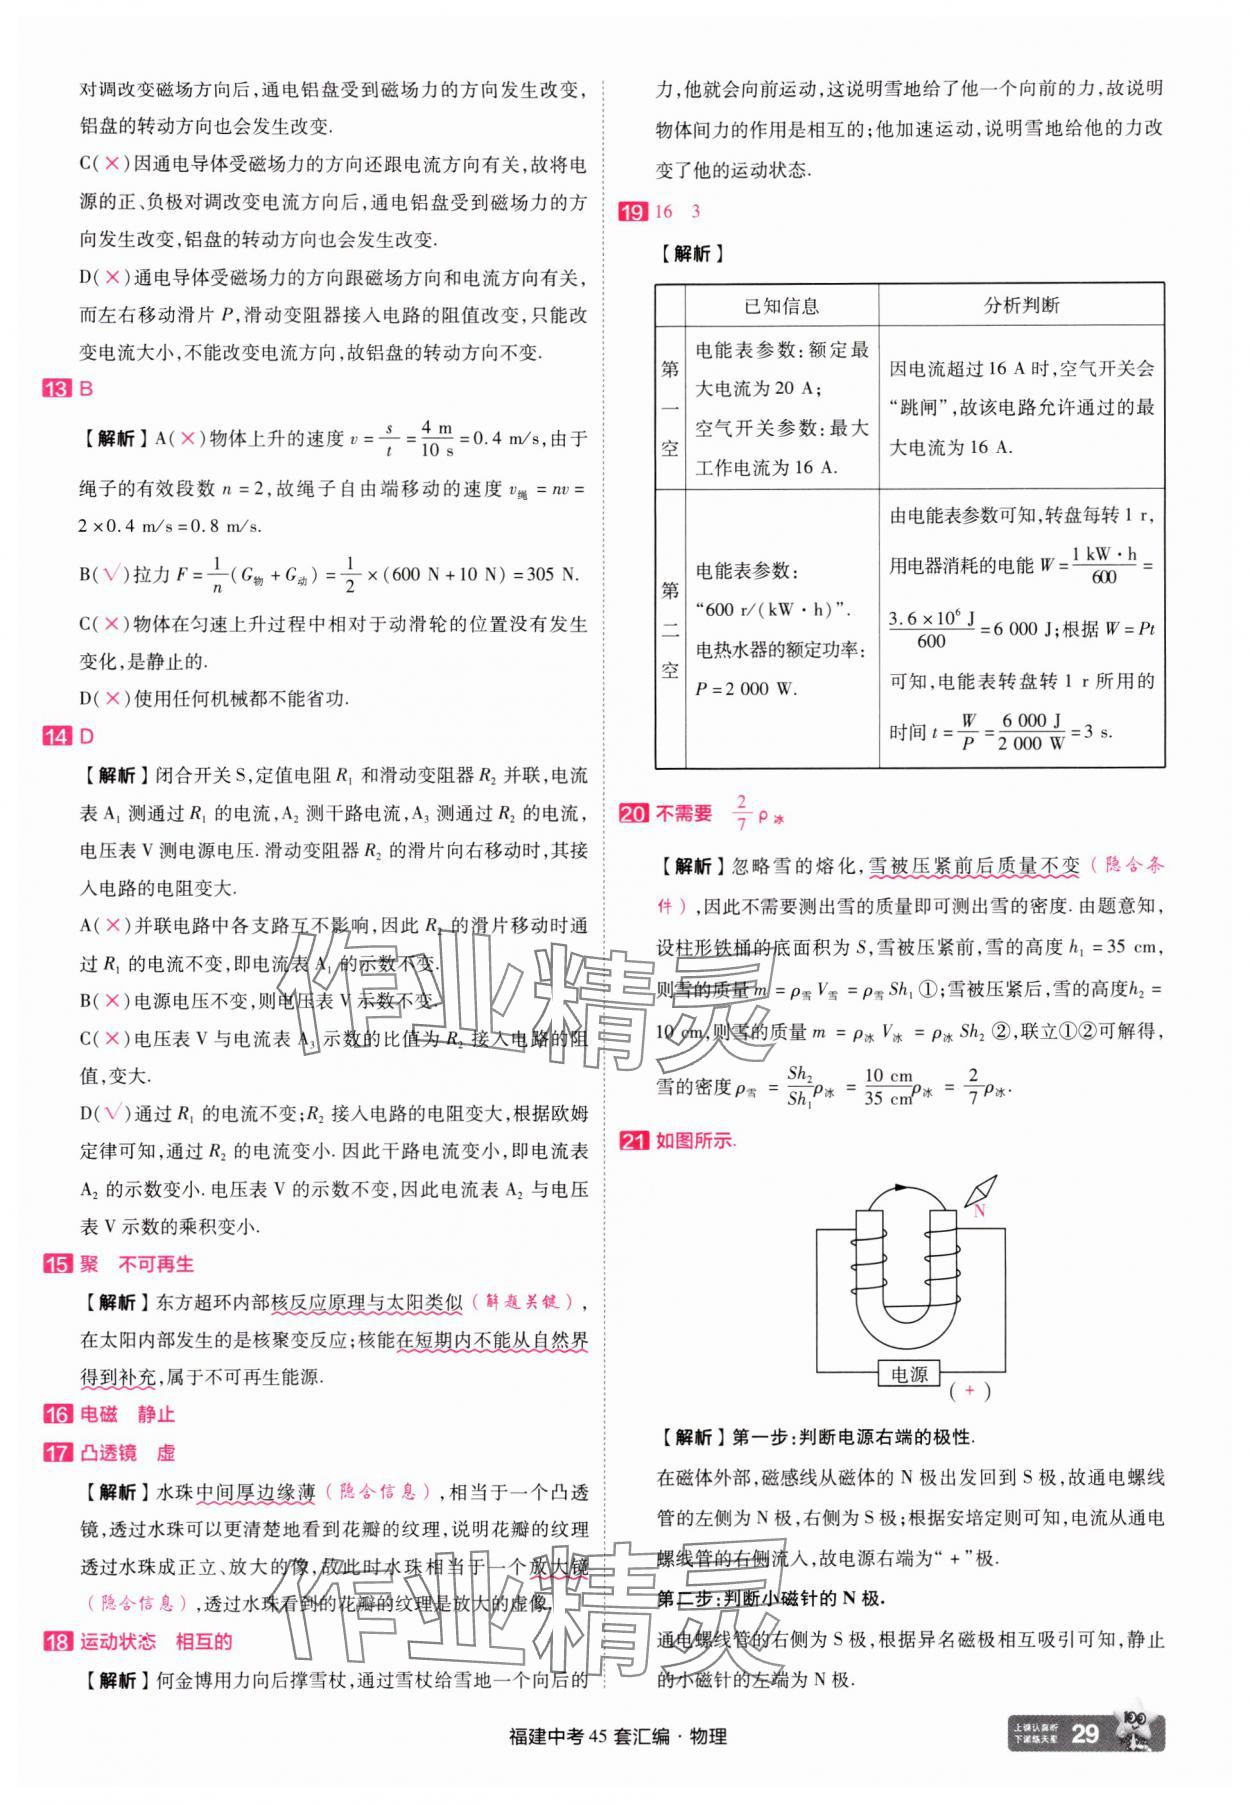 对调改变磁场方向后,通电铝盘受到磁场力的方向发生改变,
铝盘的转动方向也会发生改变.
C(×)因通电导体受磁场力的方向还跟电流方向有关,故将电
源的正、负极对调改变电流方向后,通电铝盘受到磁场力的方
向发生改变,铝盘的转动方向也会发生改变.
D(×)通电导体受磁场力的方向跟磁场方向和电流方向有关,
而左右移动滑片 P,滑动变阻器接入电路的阻值改变,只能改
变电流大小,不能改变电流方向,故铝盘的转动方向不变.
13 B
【解析】A(×)物体上升的速度 v = s/t = 4 m/10 s = 0.4 m/s,由于
绳子的有效段数 n = 2,故绳子自由端移动的速度 v绳 = nv =
2×0.4 m/s = 0.8 m/s.
B(√)拉力 F = 1/n (G物 + G动) = 1/2 ×(600 N+10 N) = 305 N.
C(×)物体在匀速上升过程中相对于动滑轮的位置没有发生
变化,是静止的.
D(×)使用任何机械都不能省功.
14 D
【解析】闭合开关 S,定值电阻 R₁ 和滑动变阻器 R₂ 并联,电流
表 A₁ 测通过 R₁ 的电流,A₂ 测干路电流,A₃ 测通过 R₂ 的电流,
电压表 V 测电源电压. 滑动变阻器 R₂ 的滑片向右移动时,其接
入电路的电阻变大.
A(×)并联电路中各支路互不影响,因此 R₂ 的滑片移动时通
过 R₁ 的电流不变,即电流表 A₁ 的示数不变.
B(×)电源电压不变,则电压表 V 示数不变.
C(×)电压表 V 与电流表 A₃ 示数的比值为 R₂ 接入电路的阻
值,变大.
D(√)通过 R₁ 的电流不变;R₂ 接入电路的电阻变大,根据欧姆
定律可知,通过 R₂ 的电流变小. 因此干路电流变小,即电流表
A₂ 的示数变小. 电压表 V 的示数不变,因此电流表 A₂ 与电压
表 V 示数的乘积变小.
15 聚 不可再生
【解析】东方超环内部核反应原理与太阳类似(解题关键),
在太阳内部发生的是核聚变反应;核能在短期内不能从自然界
得到补充,属于不可再生能源.
16 电磁 静止
17 凸透镜 虚
【解析】水珠中间厚边缘薄(隐含信息),相当于一个凸透
镜,透过水珠可以更清楚地看到花瓣的纹理,说明花瓣的纹理
透过水珠成正立、放大的像,故此时水珠相当于一个放大镜
(隐含信息),透过水珠看到的花瓣的纹理是放大的虚像.
18 运动状态 相互的
【解析】何金博用力向后撑雪杖,通过雪杖给雪地一个向后的
力,他就会向前运动,这说明雪地给了他一个向前的力,故说明
物体间力的作用是相互的;他加速运动,说明雪地给他的力改
变了他的运动状态.
19 16 3
【解析】
已知信息 分析判断
第一空
电能表参数:额定最
大电流为 20 A;
空气开关参数:最大
工作电流为 16 A.
因电流超过 16 A 时,空气开关会
“跳闸”,故该电路允许通过的最
大电流为 16 A.
第二空
电能表参数:
“600 r/(kW·h)”.
电热水器的额定功率:
P = 2 000 W.
由电能表参数可知,转盘每转 1 r,
用电器消耗的电能 W = 1 kW·h/600 =
3.6×10⁶ J/600 = 6 000 J;根据 W = Pt
可知,电能表转盘转 1 r 所用的
时间 t = W/P = 6 000 J/2 000 W = 3 s.
20 不需要 2/7 ρ冰
【解析】忽略雪的熔化,雪被压紧前后质量不变(隐含条
件),因此不需要测出雪的质量即可测出雪的密度. 由题意知,
设柱形铁桶的底面积为 S,雪被压紧前,雪的高度 h₁ = 35 cm,
则雪的质量 m = ρ雪 V雪 = ρ雪 Sh₁ ①;雪被压紧后,雪的高度h₂ =
10 cm,则雪的质量 m = ρ冰 V冰 = ρ冰 Sh₂ ②,联立①②可解得,
雪的密度 ρ雪 = Sh₂/Sh₁ ρ冰 = 10 cm/35 cm ρ冰 = 2/7 ρ冰.
21 如图所示.
N
电源
(+)
【解析】第一步:判断电源右端的极性.
在磁体外部,磁感线从磁体的 N 极出发回到 S 极,故通电螺线
管的左侧为 N 极,右侧为 S 极;根据安培定则可知,电流从通电
螺线管的右侧流入,故电源右端为“+”极.
第二步:判断小磁针的 N 极.
通电螺线管的右侧为 S 极,根据异名磁极相互吸引可知,静止
的小磁针的左端为 N 极.
作业精灵
作业精灵
福建中考 45 套汇编·物理
上课认真听
下课练天星
29
100